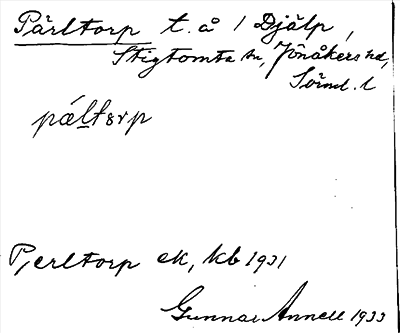 Pärltorp t. å 1 Djälp,
Stigtomta sn, Jönåkers hd,
Sörml. l
pæ̀ḷtɘrp
Pjerltorp ek, kb 1931
Gunnar Annell 1933